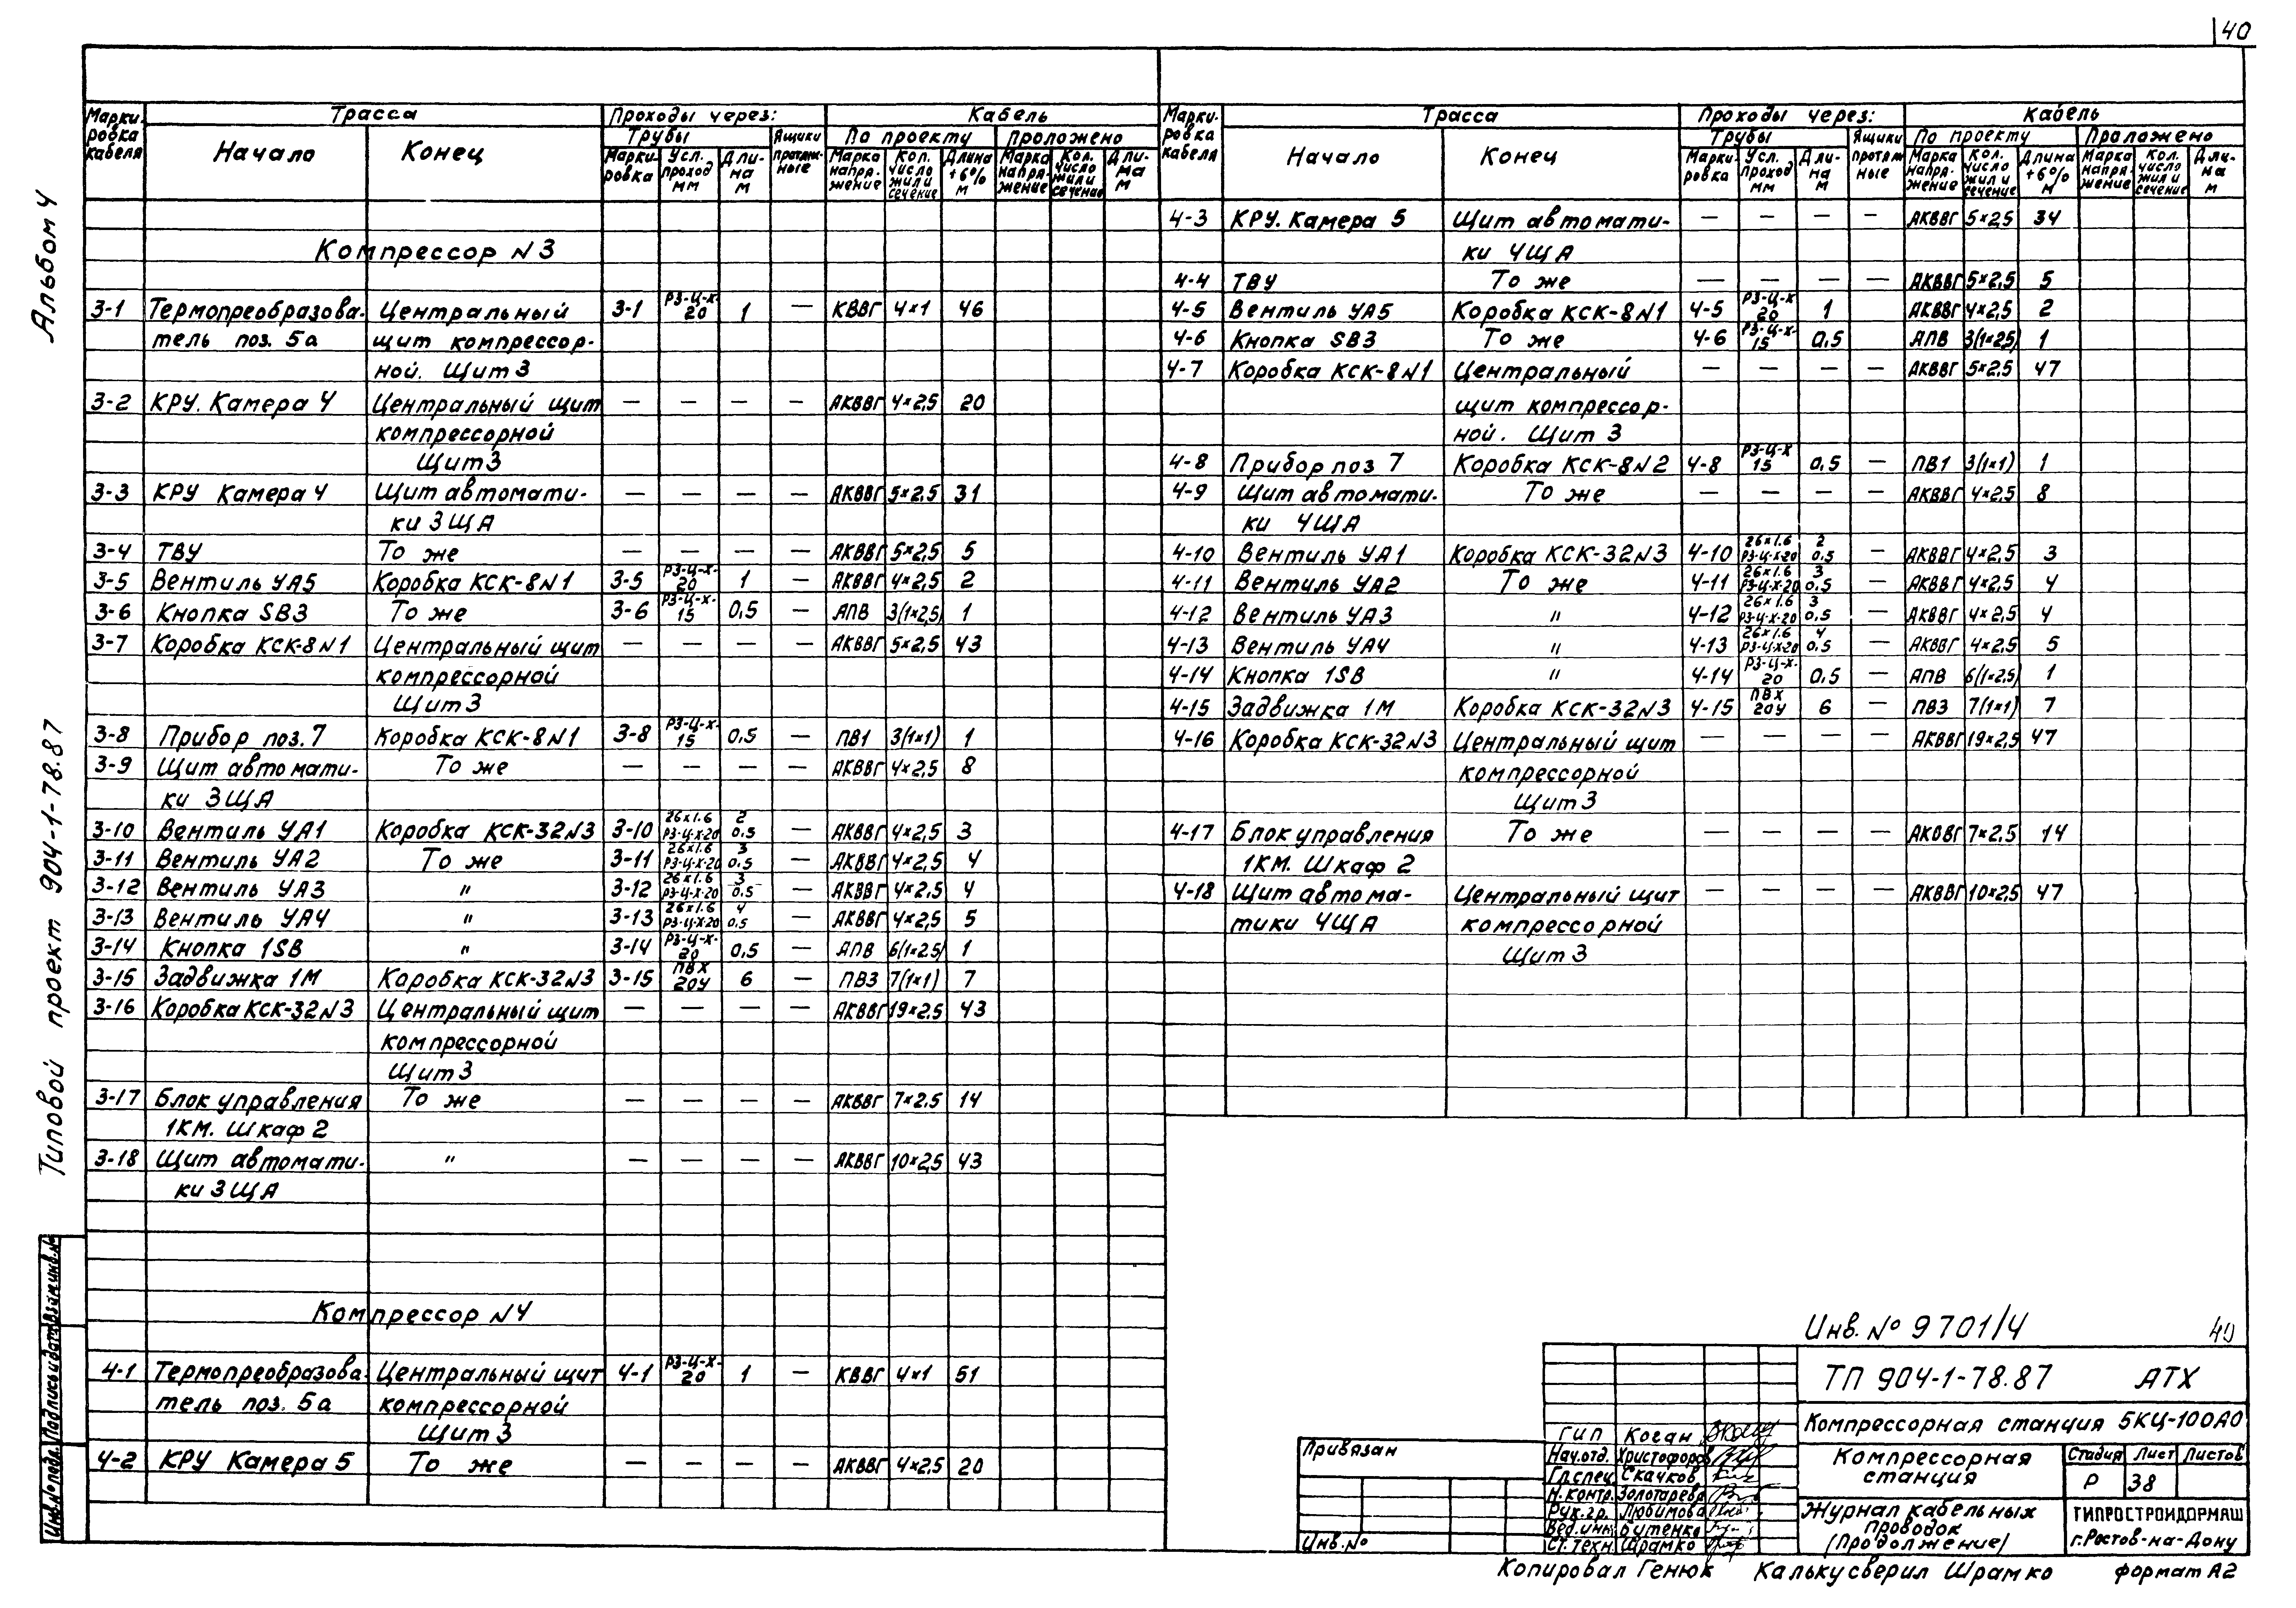 40
Альбом 4
Типовой проект 904-1-78.87
Взам.инв.№
Подпись и дата
Инв.№ подл.
Марки-ровка кабеля | Трасса | Проходы через: | Кабель
Начало | Конец | Трубы | Ящики протяж-ные | По проекту | Проложено
Марки-ровка | Усл. проход мм | Дли-на м | Марка напря-жение | Кол. число жил и сечение | Длина +6% м | Марка напря-жение | Кол. число жил и сечение | Дли-на м
Компрессор N3
3-1 Термопреобразова- Центральный 3-1 РЗ-Ц-Х-20 1 — КВВГ 4×1 46
тель поз. 5а щит компрессор-
ной. Щит 3
3-2 КРУ. Камера 4 Центральный щит — — — — АКВВГ 4×2,5 20
компрессорной
Щит 3
3-3 КРУ Камера 4 Щит автомати- — — — — АКВВГ 5×2,5 31
ки 3ЩА
3-4 ТВУ То же — — — — АКВВГ 5×2,5 5
3-5 Вентиль УА5 Коробка КСК-8N1 3-5 РЗ-Ц-Х-20 1 — АКВВГ 4×2,5 2
3-6 Кнопка SB3 То же 3-6 РЗ-Ц-Х-15 0,5 — АПВ 3(1×2,5) 1
3-7 Коробка КСК-8N1 Центральный щит — — — — АКВВГ 5×2,5 43
компрессорной
Щит 3
3-8 Прибор поз. 7 Коробка КСК-8N1 3-8 РЗ-Ц-Х-15 0,5 — ПВ1 3(1×1) 1
3-9 Щит автомати- То же — — — — АКВВГ 4×2,5 8
ки 3ЩА
3-10 Вентиль УА1 Коробка КСК-32N3 3-10 26×1.6 РЗ-Ц-Х-20 2 0,5 — АКВВГ 4×2,5 3
3-11 Вентиль УА2 То же 3-11 26×1.6 РЗ-Ц-Х-20 3 0,5 — АКВВГ 4×2,5 4
3-12 Вентиль УА3 " 3-12 26×1.6 РЗ-Ц-Х-20 3 0,5 — АКВВГ 4×2,5 4
3-13 Вентиль УА4 " 3-13 26×1.6 РЗ-Ц-Х-20 4 0,5 — АКВВГ 4×2,5 5
3-14 Кнопка 1SB " 3-14 РЗ-Ц-Х-20 0,5 — АПВ 6(1×2,5) 1
3-15 Задвижка 1М Коробка КСК-32N3 3-15 ПВХ 20У 6 — ПВ3 7(1×1) 7
3-16 Коробка КСК-32N3 Центральный щит — — — — АКВВГ 19×2,5 43
компрессорной
Щит 3
3-17 Блок управления То же — — — — АКВВГ 7×2,5 14
1КМ. Шкаф 2
3-18 Щит автомати- " — — — — АКВВГ 10×2,5 43
ки 3ЩА
Компрессор N4
4-1 Термопреобразова- Центральный щит 4-1 РЗ-Ц-Х-20 1 — КВВГ 4×1 51
тель поз. 5а компрессорной
Щит 3
4-2 КРУ Камера 5 То же — — — — АКВВГ 4×2,5 20
Марки-ровка кабеля | Трасса | Проходы через: | Кабель
Начало | Конец | Трубы | Ящики протяж-ные | По проекту | Проложено
Марки-ровка | Усл. проход мм | Дли-на м | Марка напря-жение | Кол. число жил и сечение | Длина +6% м | Марка напря-жение | Кол. число жил и сечение | Дли-на м
4-3 КРУ. Камера 5 Щит автомати- — — — — АКВВГ 5×2,5 34
ки 4ЩА
4-4 ТВУ То же — — — — АКВВГ 5×2,5 5
4-5 Вентиль УА5 Коробка КСК-8N1 4-5 РЗ-Ц-Х 20 1 — АКВВГ 4×2,5 2
4-6 Кнопка SB3 То же 4-6 РЗ-Ц-Х-15 0,5 — АПВ 3(1×2,5) 1
4-7 Коробка КСК-8N1 Центральный — — — — АКВВГ 5×2,5 47
щит компрессор-
ной. Щит 3
4-8 Прибор поз 7 Коробка КСК-8N2 4-8 РЗ-Ц-Х 15 0,5 — ПВ1 3(1×1) 1
4-9 Щит автомати- То же — — — — АКВВГ 4×2,5 8
ки 4ЩА
4-10 Вентиль УА1 Коробка КСК-32N3 4-10 26×1.6 РЗ-Ц-Х-20 2 0,5 — АКВВГ 4×2,5 3
4-11 Вентиль УА2 То же 4-11 26×1.6 РЗ-Ц-Х-20 3 0,5 — АКВВГ 4×2,5 4
4-12 Вентиль УА3 " 4-12 26×1.6 РЗ-Ц-Х-20 3 0,5 — АКВВГ 4×2,5 4
4-13 Вентиль УА4 " 4-13 26×1.6 РЗ-Ц-Х-20 4 0,5 — АКВВГ 4×2,5 5
4-14 Кнопка 1SB " 4-14 РЗ-Ц-Х-20 0,5 — АПВ 6(1×2,5) 1
4-15 Задвижка 1М Коробка КСК-32N3 4-15 ПВХ 20У 6 — ПВ3 7(1×1) 7
4-16 Коробка КСК-32N3 Центральный щит — — — — АКВВГ 19×2,5 47
компрессорной
Щит 3
4-17 Блок управления То же — — — — АКВВГ 7×2,5 14
1КМ. Шкаф 2
4-18 Щит автома- Центральный щит — — — — АКВВГ 10×2,5 47
тики 4ЩА компрессорной
Щит 3
Инв. № 9701/4 40
ТП 904-1-78.87 АТХ
Компрессорная станция 5КЦ-100А0
Компрессорная станция
Стадия Лист Листов
Р 38
Журнал кабельных проводок (Продолжение)
ГИПРОСТРОЙДОРМАШ
г.Ростов-на-Дону
Привязан
Инв.№
ГИП Коган
Нач.отд. Христофоров
Гл.спец. Скачков
Н.контр. Золотарева
Рук.гр. Любимова
Вед.инж. Бутенко
Ст.техн. Шрамко
Копировал Генюк Кальку сверил Шрамко формат А2